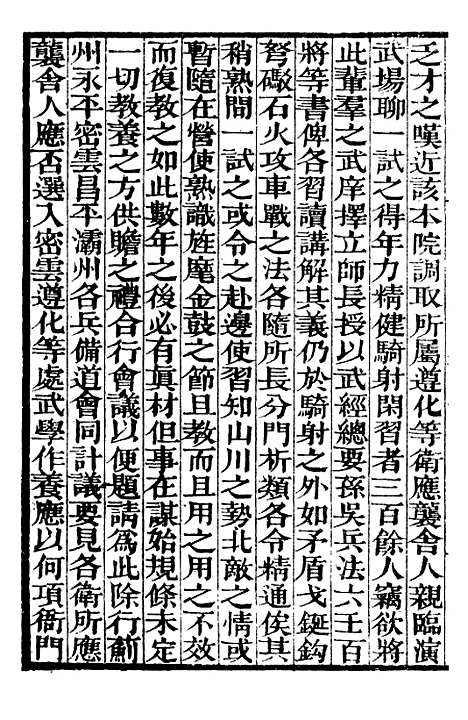 乏才之嘆近該本院調取所屬遵化等衛應襲舍人親臨演
武場聊一試之得年力精健騎射閑習者三百餘人竊欲將
此輩羣之武庠擇立師長授以武經總要孫吳兵法六壬百
將等書俾各習讀講解其義仍於騎射之外如矛盾戈鋋鈎
弩礮石火攻車戰之法各隨所長分門析類各令精通俟其
稍熟間一試之或令之赴邊使習知山川之勢北敵之情或
暫隨在營使熟識旌麾金鼓之節且教而且用之用之不效
而復教之如此數年之後必有眞材但事在謀始規條未定
一切教養之方供贍之禮合行會議以便題請爲此除行薊
州永平密雲昌平灞州各兵備道會同計議要見各衛所應
襲舍人應否選入密雲遵化等處武學作養應以何項衙門